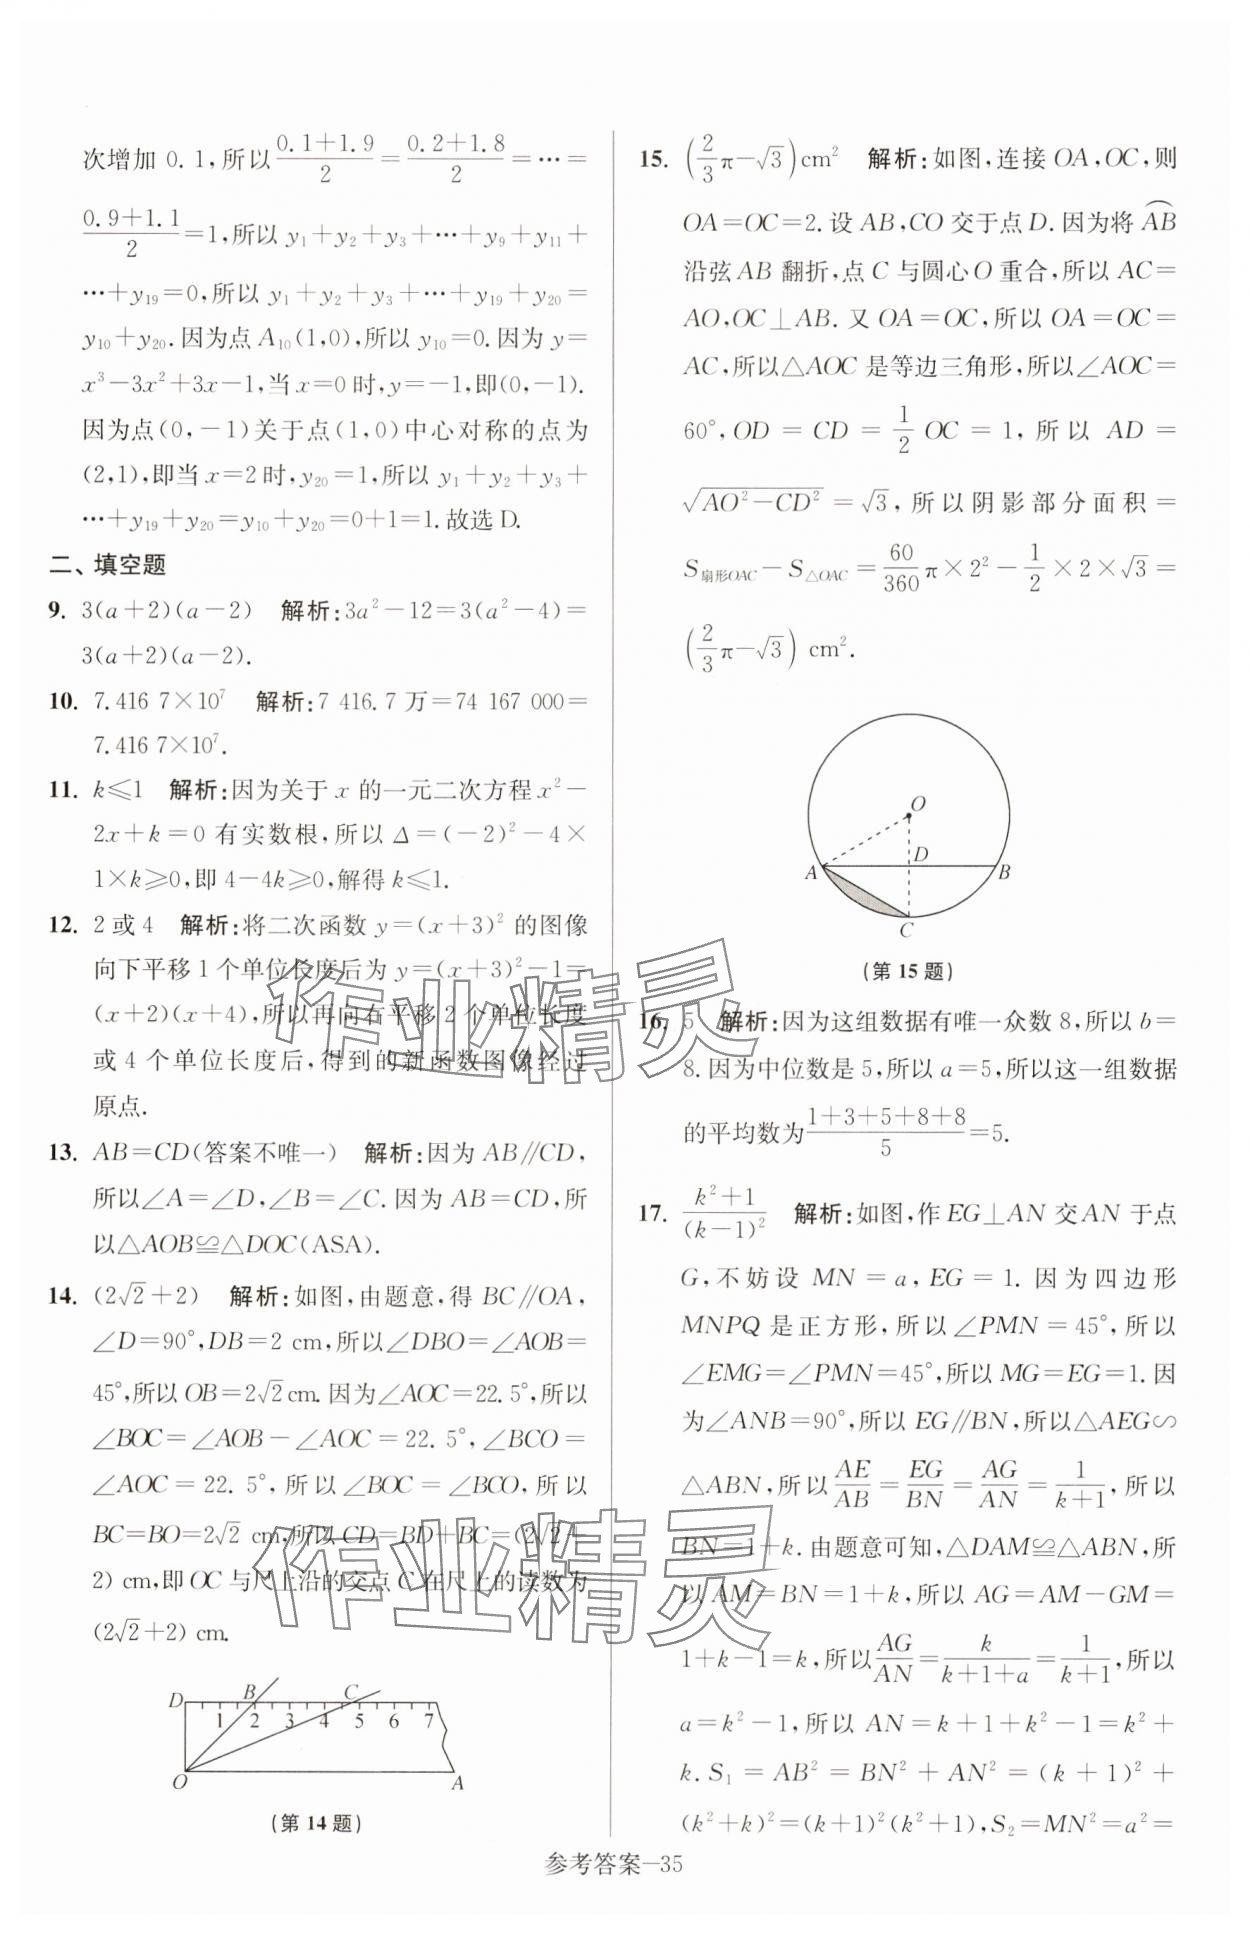 次增加 0.1,所以 (0.1+1.9)/2 = (0.2+1.8)/2 = … =
(0.9+1.1)/2 =1,所以 y₁+y₂+y₃+…+y₉+y₁₁+
…+y₁₉=0,所以 y₁+y₂+y₃+…+y₁₉+y₂₀=
y₁₀+y₂₀.因为点 A₁₀(1,0),所以 y₁₀=0.因为 y=
x³-3x²+3x-1,当 x=0 时,y=-1,即(0,-1).
因为点(0,-1)关于点(1,0)中心对称的点为
(2,1),即当 x=2 时,y₂₀=1,所以 y₁+y₂+y₃+
…+y₁₉+y₂₀=y₁₀+y₂₀=0+1=1.故选 D.
二、填空题
9. 3(a+2)(a-2) 解析:3a²-12=3(a²-4)=
3(a+2)(a-2).
10. 7.416 7×10⁷ 解析:7 416.7 万=74 167 000=
7.416 7×10⁷.
11. k≤1 解析:因为关于 x 的一元二次方程 x²-
2x+k=0 有实数根,所以 Δ=(-2)²-4×
1×k≥0,即 4-4k≥0,解得 k≤1.
12. 2 或 4 解析:将二次函数 y=(x+3)² 的图像
向下平移 1 个单位长度后为 y=(x+3)²-1=
(x+2)(x+4),所以再向右平移 2 个单位长度
或 4 个单位长度后,得到的新函数图像经过
原点.
13. AB=CD(答案不唯一) 解析:因为 AB∥CD,
所以∠A=∠D,∠B=∠C.因为 AB=CD,所
以△AOB≌△DOC(ASA).
14. (2√2+2) 解析:如图,由题意,得 BC∥OA,
∠D=90°,DB=2 cm,所以∠DBO=∠AOB=
45°,所以 OB=2√2 cm.因为∠AOC=22.5°,所以
∠BOC=∠AOB-∠AOC=22.5°,∠BCO=
∠AOC=22.5°,所以∠BOC=∠BCO,所以
BC=BO=2√2 cm,所以 CD=BD+BC=(2√2+
2) cm,即 OC 与尺上沿的交点 C 在尺上的读数为
(2√2+2) cm.
D B C
1 2 3 4 5 6 7
O A
(第 14 题)
15. (2/3 π-√3)cm² 解析:如图,连接 OA,OC,则
OA=OC=2.设 AB,CO 交于点 D.因为将 A͡B
沿弦 AB 翻折,点 C 与圆心 O 重合,所以 AC=
AO,OC⊥AB.又 OA=OC,所以 OA=OC=
AC,所以△AOC 是等边三角形,所以∠AOC=
60°,OD=CD=1/2 OC=1,所以 AD=
√(AO²-CD²)=√3,所以阴影部分面积=
S扇形OAC-S△OAC=60/360 π×2²-1/2×2×√3=
(2/3 π-√3) cm².
O
A D B
C
(第 15 题)
16. 5 解析:因为这组数据有唯一众数 8,所以 b=
8.因为中位数是 5,所以 a=5,所以这一组数据
的平均数为 (1+3+5+8+8)/5 =5.
17. (k²+1)/(k-1)² 解析:如图,作 EG⊥AN 交 AN 于点
G,不妨设 MN=a,EG=1.因为四边形
MNPQ 是正方形,所以∠PMN=45°,所以
∠EMG=∠PMN=45°,所以 MG=EG=1.因
为∠ANB=90°,所以 EG∥BN,所以△AEG∽
△ABN,所以 AE/AB=EG/BN=AG/AN=1/(k+1),所以
BN=1+k.由题意可知,△DAM≌△ABN,所
以 AM=BN=1+k,所以 AG=AM-GM=
1+k-1=k,所以 AG/AN=k/(k+1+a)=1/(k+1),所以
a=k²-1,所以 AN=k+1+k²-1=k²+
k.S₁=AB²=BN²+AN²=(k+1)²+
(k²+k)²=(k+1)²(k²+1),S₂=MN²=a²=
参考答案—35
作业精灵
作业精灵